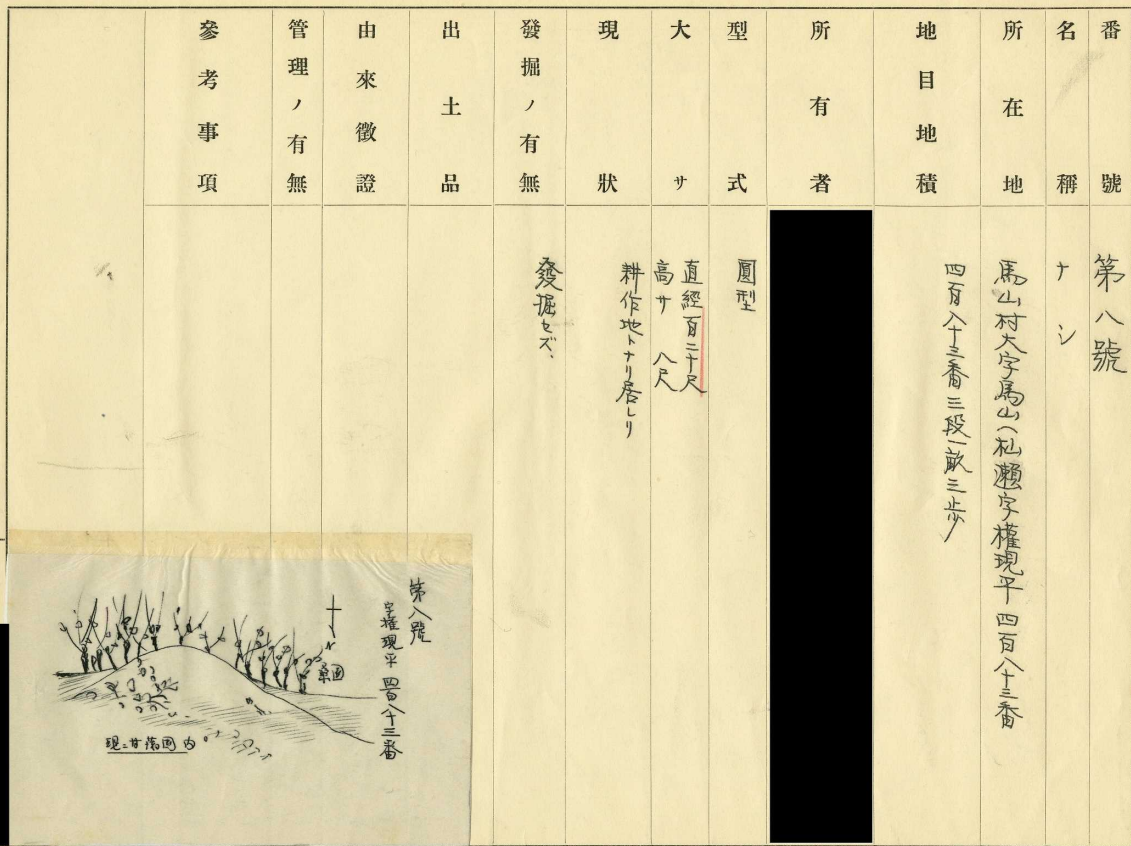 番號
第八號
名稱
ナシ
所在地
馬山村大字馬山(杣瀬字權現平四百八十三番
地目地積
四百八十三番三段一畝三歩
所有者
型式
圓型
大サ
直經百二十尺
高サ 八尺
現狀
耕作地トナリ居レリ
發掘ノ有無
發掘セズ、
出土品
由來徵證
管理ノ有無
參考事項
第八號
字権現平 四百八十三番
N
桑園
現ニ甘藷園内